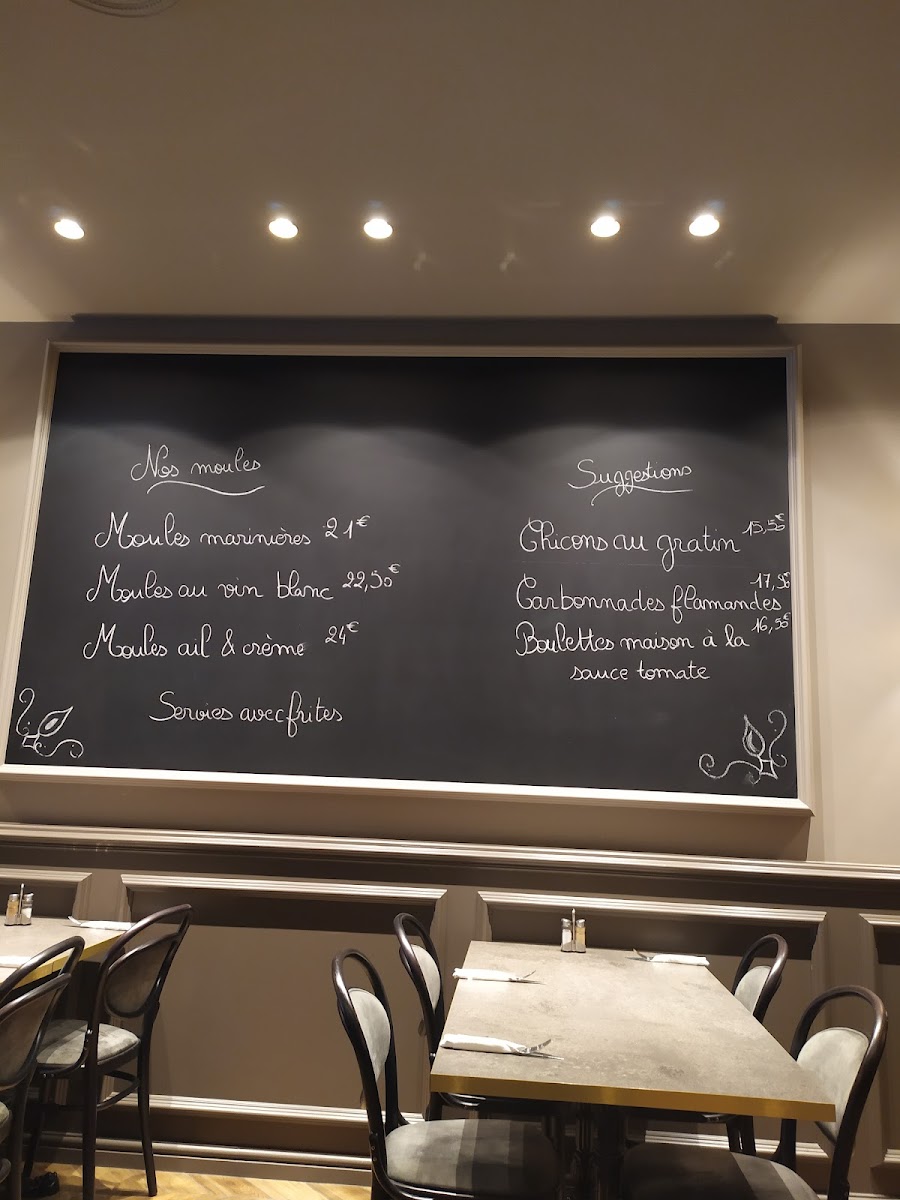 Nos moules
Moules marinières 21€
Moules au vin blanc 22,50€
Moules ail & crème 24€
Servies avec frites
Suggestions
Chicons au gratin 15,50€
Carbonnades flamandes 17,50€
Boulettes maison à la 16,50€
sauce tomate